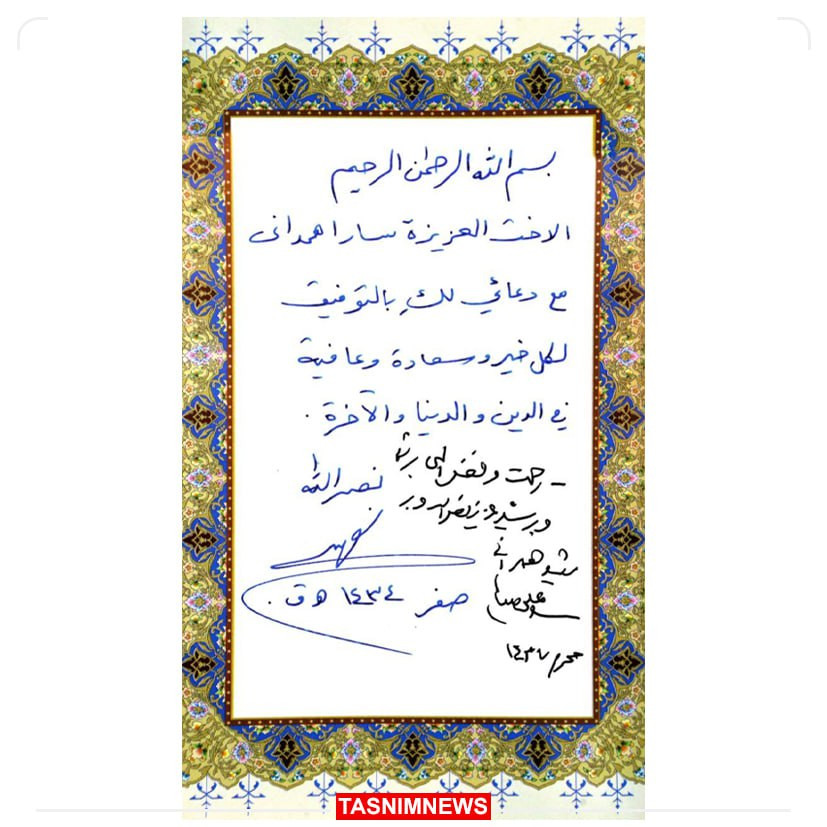 بسم الله الرحمن الرحيم
الاخت العزيزة سارا همدانى
مع دعائي لكِ بالتوفيق
لكل خير وسعادة وعافية
في الدين والدنيا والآخرة .
ـ رحمت و فضل الهی بر شما
نصر الله
و بر شهید عزیز نصرالله و بر
شهید همدانی
صفر ١٤٣٤ هـ ق .
محرم ١٤٣٧
TASNIMNEWS